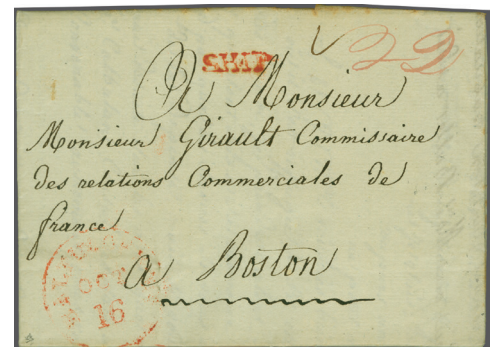 SHIP
22
A Monsieur
Monsieur Girault Commissaire
des relations Commerciales de
france
a Boston
OCT
16